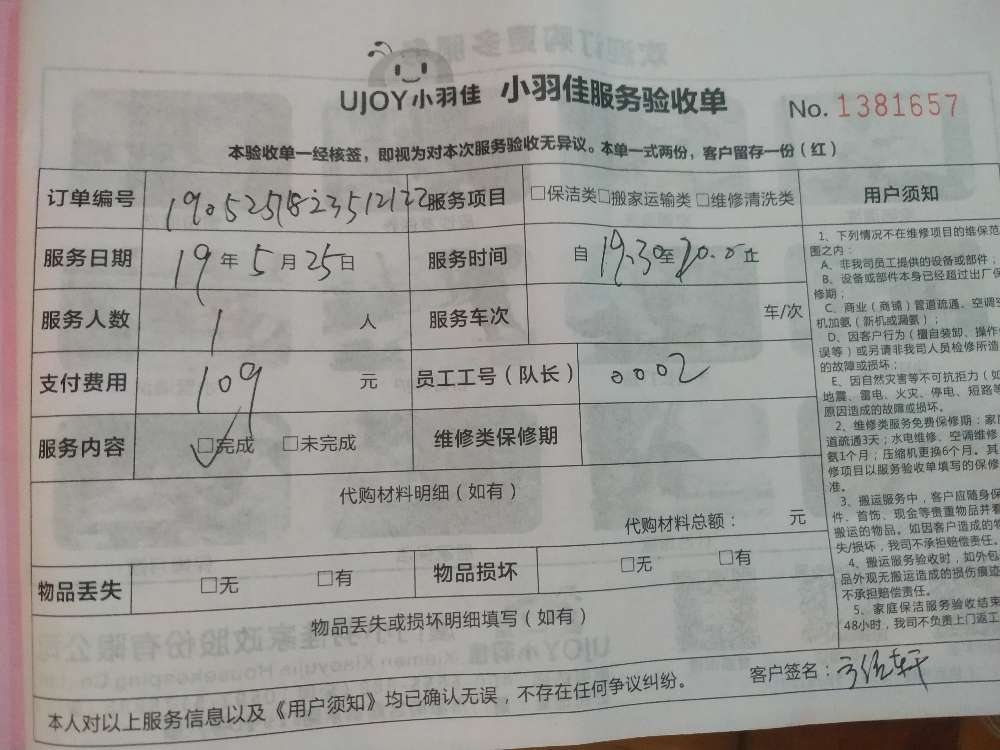 UJOY小羽佳 小羽佳服务验收单 No. 1381657
本验收单一经核签，即视为对本次服务验收无异议。本单一式两份，客户留存一份（红）
订单编号 1905251823512122 服务项目 □保洁类□搬家运输类 □维修清洗类
服务日期 19年5月25日 服务时间 自19:30至20.0止
服务人数 1 人 服务车次 车/次
支付费用 109 元 员工工号（队长） 0002
服务内容 □完成 □未完成 维修类保修期
代购材料明细（如有）
代购材料总额： 元
物品丢失 □无 □有 物品损坏 □无 □有
物品丢失或损坏明细填写（如有）
客户签名：
本人对以上服务信息以及《用户须知》均已确认无误，不存在任何争议纠纷。
用户须知
1、下列情况不在维修项目的维保范
围之内：
A、非我司员工提供的设备或部件；
B、设备或部件本身已经超过出厂保
修期；
C、商业（商铺）管道疏通、空调空
机加氨（新机或漏氨）；
D、因客户行为（擅自装卸、操作
误等）或另请非我司人员检修所造
的故障或损坏；
E、因自然灾害等不可抗拒力（如
地震、雷电、火灾、停电、短路等
原因造成的故障或损坏。
2、维修类服务免费保修期：家庭
道疏通3天；水电维修、空调维修
氨1个月；压缩机更换6个月。其
修项目以服务验收单填写的保修
准。
3、搬运服务中，客户应随身保
件、首饰、现金等贵重物品并看
搬运的物品。如因客户造成的物
失/损坏，我司不承担赔偿责任。
4、搬运服务验收时，如外包
品外观无搬运造成的损伤痕迹
不承担赔偿责任。
5、家庭保洁服务验收结束
48小时，我司不负责上门返工